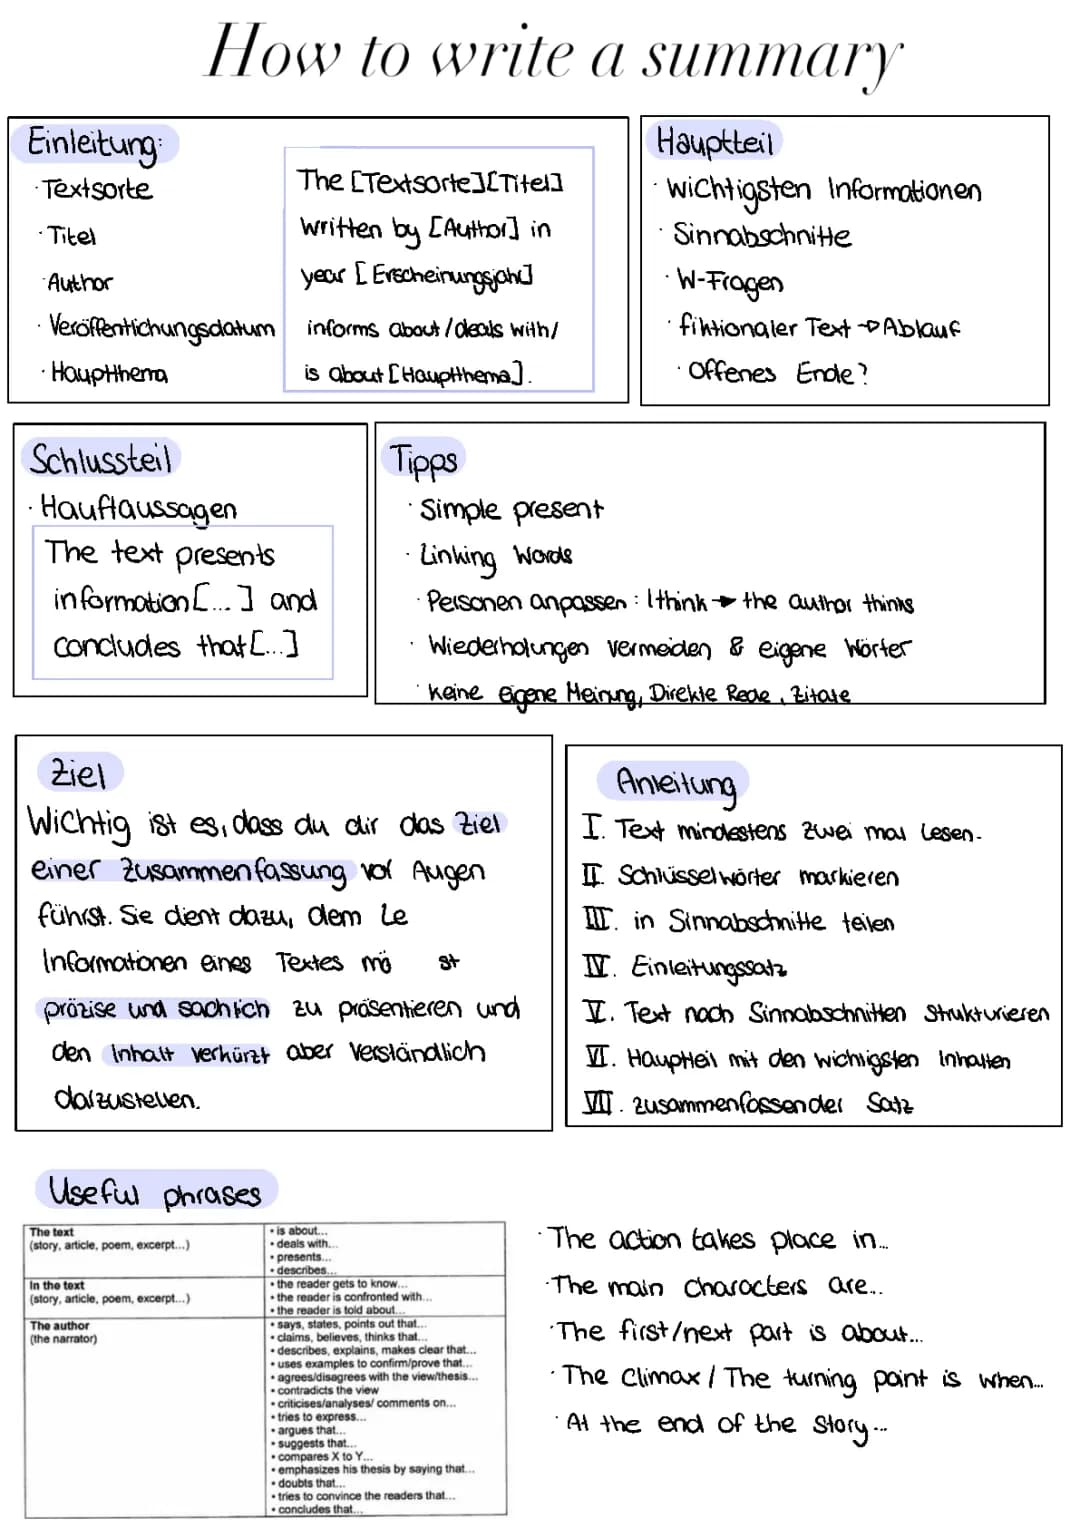 How to write a summary
Einleitung:
· Textsorte
· Titel
· Author
· Veröffentichungsdatum
· Hauptthema
The [Textsorte][Titel]
written by [Author] in
year [Erscheinungsjahr]
informs about/deals with/
is about [Hauptthema].
Hauptteil
· wichtigsten Informationen
· Sinnabschnitte
· W-Fragen
· fiktionaler Text → Ablauf
· Offenes Ende?
Schlussteil
· Hauftaussagen
The text presents
information [...] and
concludes that [...]
Tipps
· Simple present
· Linking Words
· Personen anpassen: I think → the author thinks
· Wiederholungen vermeiden & eigene Wörter
· keine eigene Meinung, Direkte Rede, Zitate
Ziel
Wichtig ist es, dass du dir das Ziel
einer Zusammenfassung vor Augen
führst. Sie dient dazu, dem Le
Informationen eines Textes mö st
präzise und sachlich zu präsentieren und
den Inhalt verkürzt aber verständlich
darzustellen.
Anleitung
I. Text mindestens zwei mal lesen.
II. Schlüsselwörter markieren
III. in Sinnabschnitte teilen
IV. Einleitungssatz
V. Text nach Sinnabschnitten strukturieren
VI. Hauptteil mit den wichtigsten Inhalten
VII. zusammenfassender Satz
Useful phrases
The text
(story, article, poem, excerpt...)
• is about...
• deals with...
• presents...
• describes...
In the text
(story, article, poem, excerpt...)
• the reader gets to know...
• the reader is confronted with...
• the reader is told about...
The author
(the narrator)
• says, states, points out that...
• claims, believes, thinks that...
• describes, explains, makes clear that...
• uses examples to confirm/prove that...
• agrees/disagrees with the view/thesis...
• contradicts the view
• criticises/analyses/ comments on...
• tries to express...
• argues that...
• suggests that...
• compares X to Y...
• emphasizes his thesis by saying that...
• doubts that...
• tries to convince the readers that...
• concludes that...
· The action takes place in...
· The main characters are...
· The first/next part is about...
· The Climax / The turning point is when...
· At the end of the story...